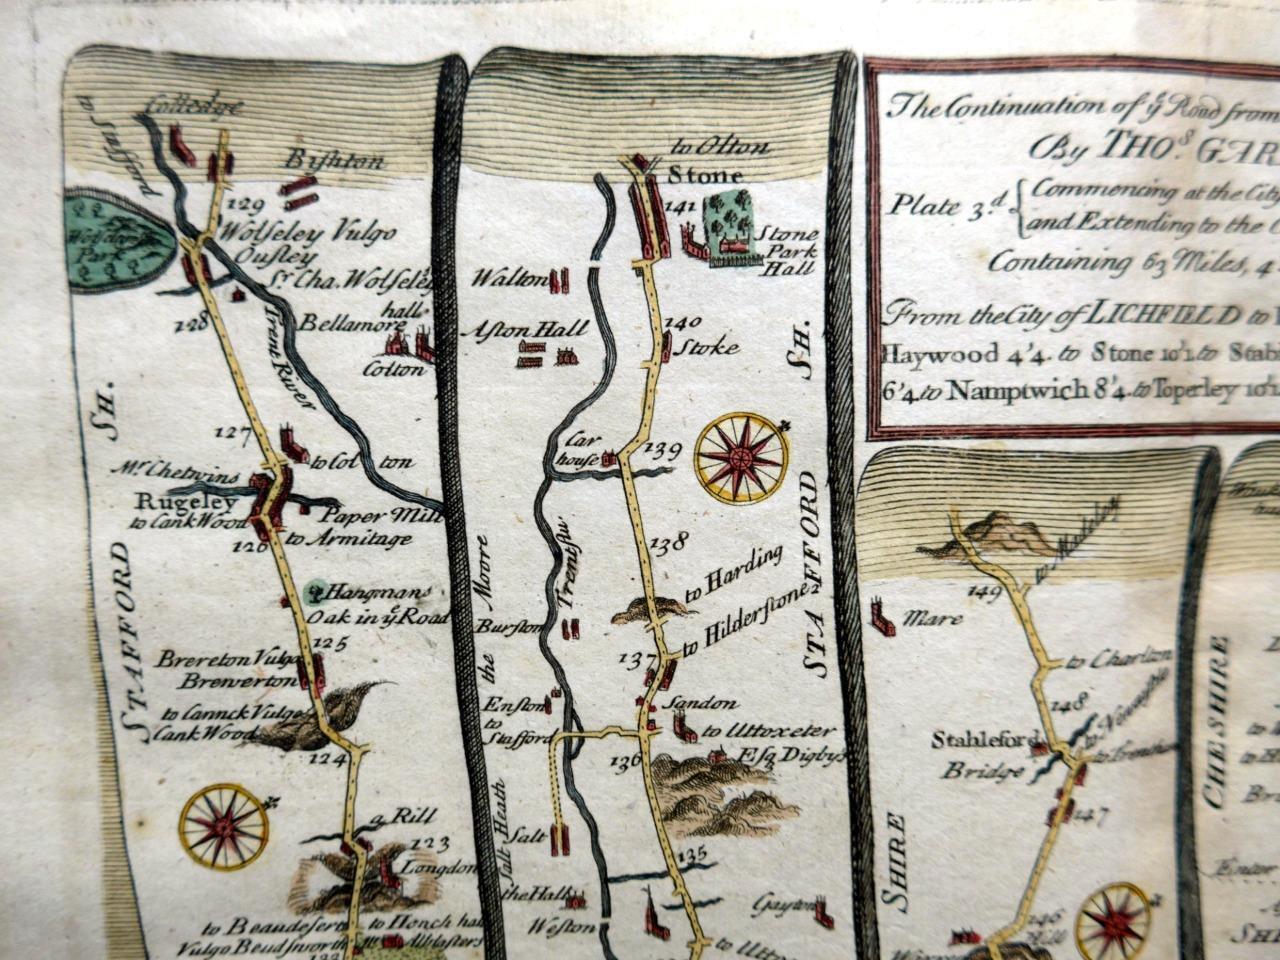 Colledge
to Stafford
Bishton
129
Wolseley Vulgo
Ousley
Wolseley
Park
Sr. Cha. Wolseley
hall
128
Trent River
Bellamore
Colton
SH.
127
to Col ton
Mr. Chetwins
Rugeley
to Cank Wood
Paper Mill
126
to Armitage
Hangmans
Oak in ye Road
STAFFORD
125
Brereton Vulgo
Brewerton
to Cannck Vulgo
Cank Wood
124
a Rill
123
Longdon
to Beaudesert
to Honch hall
Vulgo Beudsworth
to Olton
Stone
141
Stone
Park
Hall
Walton
Aston Hall
140
Stoke
SH.
Car
house
139
138
Trent flu.
to Harding
to Hilderstone
STAFFORD
Burston
137
the Moore
Enston
Sandon
to
Stafford
to Uttoxeter
136
Esq. Digbys
Salt Heath
Salt
135
the Hall
Weston
Gayton
to Utto
The Continuation of ye Road from
By THOS. GAR
Plate 3.d
Commencing at the City
and Extending to the C
Containing 63 Miles, 4
From the City of LICHFIELD to
Haywood 4'4. to Stone 10'1. to Stabl
6'4. to Namptwich 8'4. to Toperley 10'1
to Madeley
149
Mare
to Charlton
148
to Newcastle
Stableford
Bridge
to Trentham
147
SHIRE
146
Hill
CHESHIRE
Enter